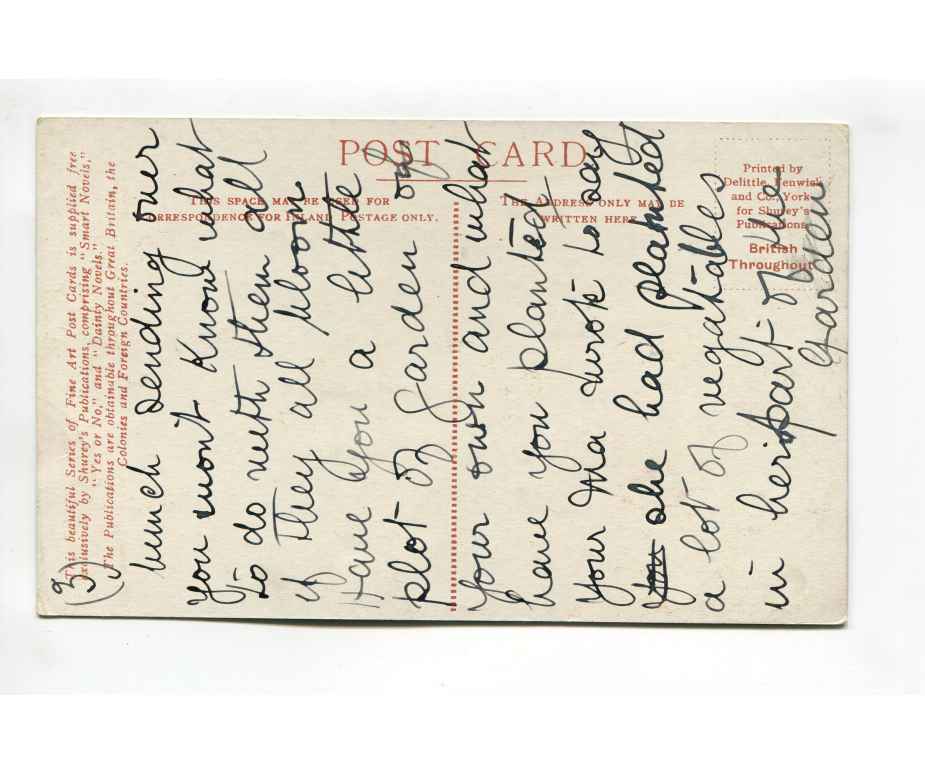 POST CARD
THIS SPACE MAY BE USED FOR
CORRESPONDENCE FOR INLAND POSTAGE ONLY.
THE ADDRESS ONLY MAY BE
WRITTEN HERE
Printed by
Delittle, Fenwick
and Co., York,
for Shurey's
Publications.
British
Throughout
This beautiful Series of Fine Art Post Cards is supplied free
exclusively by Shurey's Publications, comprising "Smart Novels,"
"Yes or No," and "Dainty Novels."
The Publications are obtainable throughout Great Britain, the
Colonies and Foreign Countries.
(3)
much sending over
you wont know what
to do with them all
if They all bloom
Have you a little
plot of garden of
your own and what
have you planted
your Ma wrote to say
you she had planted
a lot of vegatables
in her part of the
Garden